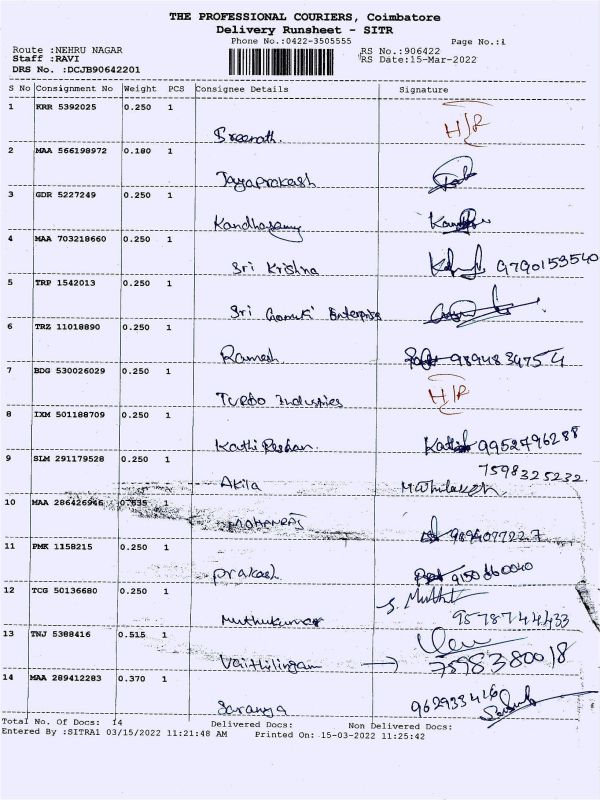 THE PROFESSIONAL COURIERS, Coimbatore
Delivery Runsheet - SITR
Phone No.:0422-3505555 Page No.:1
Route :NEHRU NAGAR RS No.:906422
Staff :RAVI RS Date:15-Mar-2022
DRS No. :DCJB90642201
S No Consignment No Weight PCS Consignee Details Signature
1 KRR 5392025 0.250 1
Sreenath. H/R
2 MAA 566198972 0.180 1
Jayaprakash
3 GDR 5227249 0.250 1
Kandhasamy
4 MAA 703218660 0.250 1
Sri Krishna 9790153540
5 TRP 1542013 0.250 1
Sri Gomuki Enterprise
6 TRZ 11018890 0.250 1
Ramesh 9894834754
7 BDG 530026029 0.250 1
Turbo Industries H/R
8 IXM 501188709 0.250 1
Kathireshan 9952796288
9 SLM 291179528 0.250 1 7598325232
Akila
10 MAA 286426946 0.635 1
MOHANRAJ
11 PMK 1158215 0.250 1
prakash
12 TCG 50136680 0.250 1 S. Muthu
Muthukumar 9578744433
13 TNJ 5388416 0.515 1
Vaithilingam → 7598380018
14 MAA 289412283 0.370 1
Saranya
Total No. Of Docs: 14 Delivered Docs: Non Delivered Docs:
Entered By :SITRA1 03/15/2022 11:21:48 AM Printed On: 15-03-2022 11:25:42